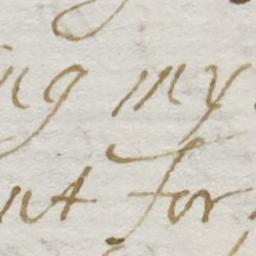 ng my
nt for